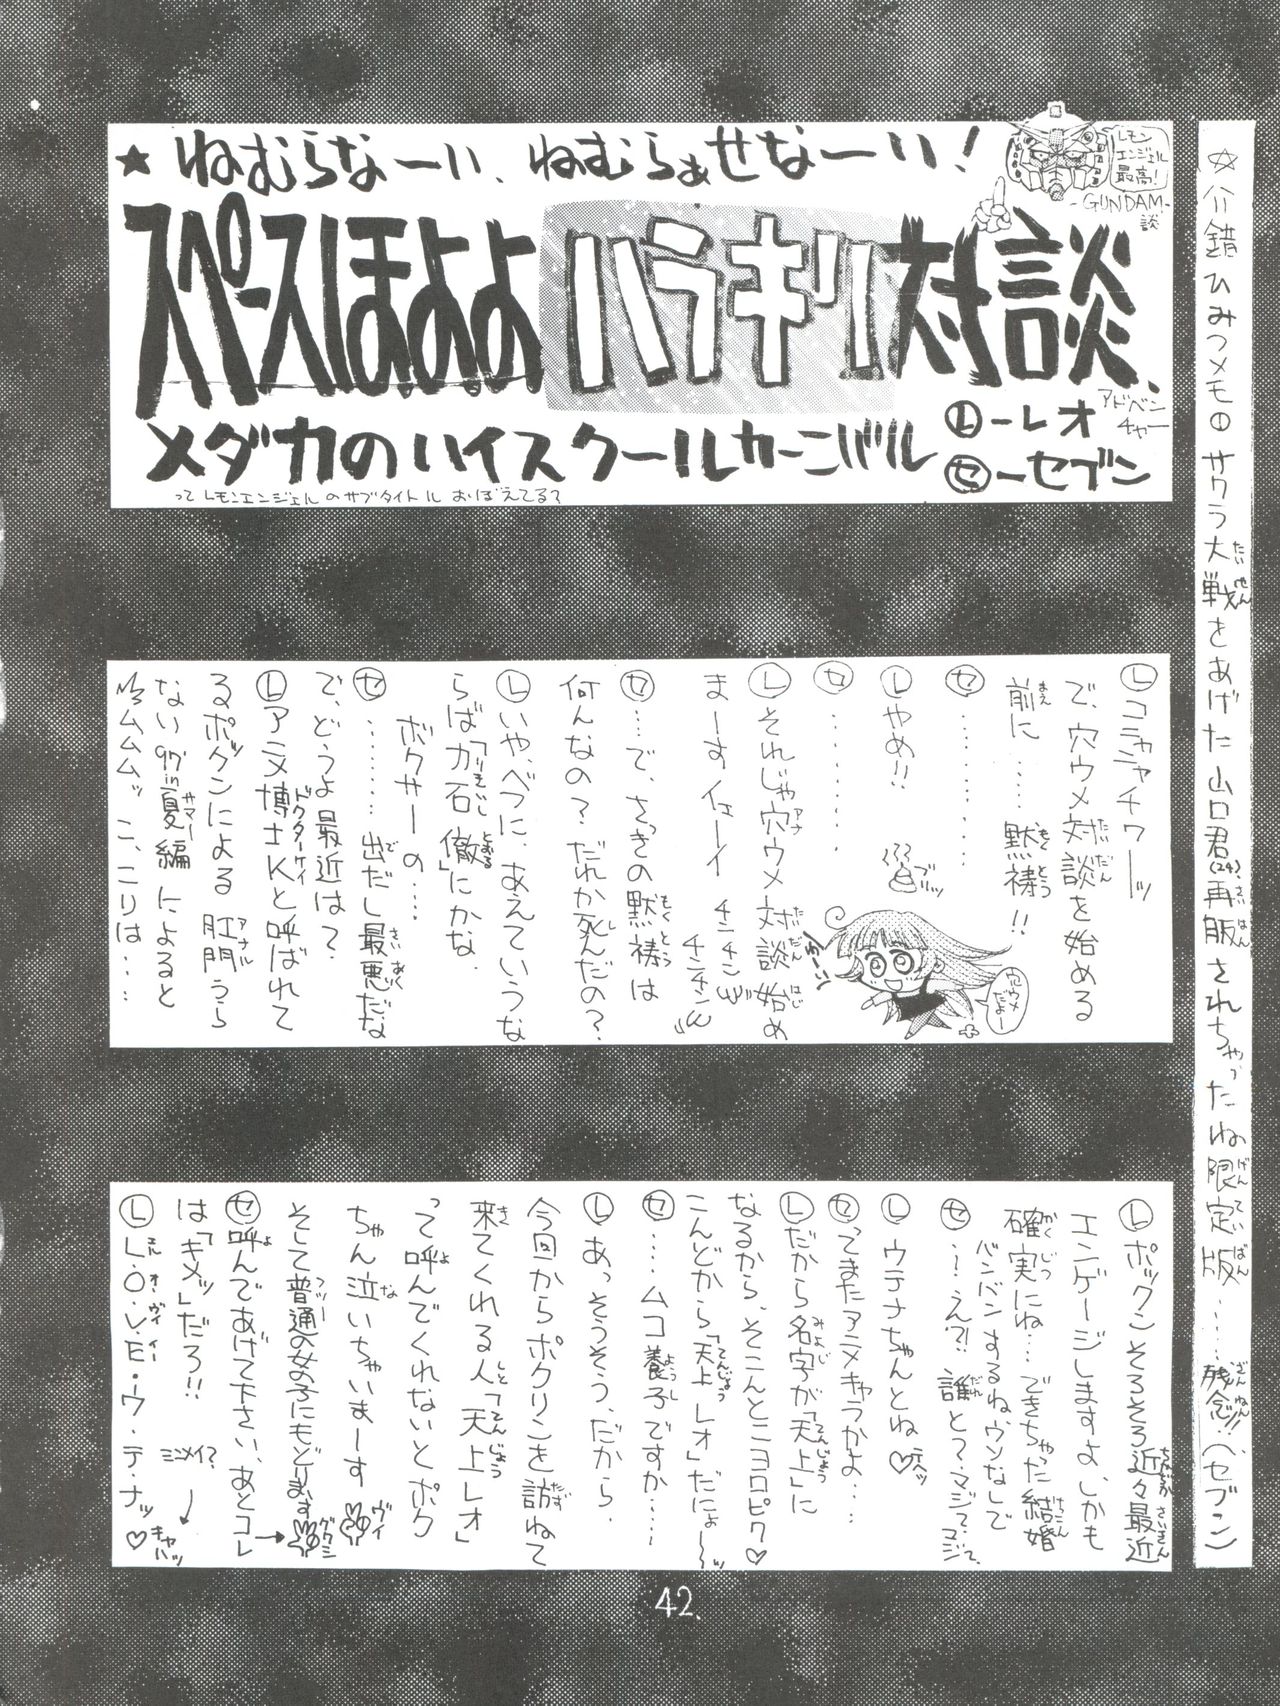 ★ねむらなーい、ねむらぁせなーい!
レモン
エンジェル
最高!
-GUNDAM-
談
スペースほよよハラキリ対談、
アドベン
チャー
メダカのハイスクールカーニバル
Ⓛ-レオ
㋝-セブン
ってレモンエンジェルのサブタイトルおぼえてる?
錯ひみつメモ サクラ大戦をあげた山口君(24)再版されちゃったね限定版……残念!!(セブン)
Ⓛコニャニャチワーッ
で、穴ウメ対談を始める
前に……黙祷!!
㋝………
Ⓛやめ!!
ブッッ
㋝………
Ⓛそれじゃ穴ウメ対談始め
まーすイェーイ チンチン
チンチン
㋝…で、さっきの黙祷は
何んなの?だれか死んだの?
Ⓛいや、べつに、あえていうな
らば「力石徹」にかな
ボクサーの…
㋝………出だし最悪だな
で、どうよ最近は?
Ⓛアニメ博士Kと呼ばれて
るポックンによる肛門うら
ない97in夏編によると
ムムムムッこ、こりは…
穴ウメ
だよー
Ⓛポックンそろそろ近々最近
エンゲージしますよ、しかも
確実にね…できちゃった結婚
バンバンするね、ウソなしで
㋝…え?!誰と?マジ?マジで、
Ⓛウテナちゃんとね♡
㋝ってまたアニメキャラかよ…
Ⓛだから名字が「天上」に
なるから、そこんとこヨロピク♡
こんどから「天上レオ」だにょ〜ッ
㋝……ムコ養子ですか……
Ⓛあっそうそう、だから
今回からポクリンを訪ねて
来てくれる人「天上レオ」
って呼んでくれないとポク
ちゃん泣いちゃいまーす
ヴイ
そして普通の女の子にもどります
グワシ
㋝呼んであげて下さい、あとコレ
は「キメッ」だろ!!
ミンメイ?
キャハッ
ⓁL.O.V.E・ウ・テ・ナッ♡
42.